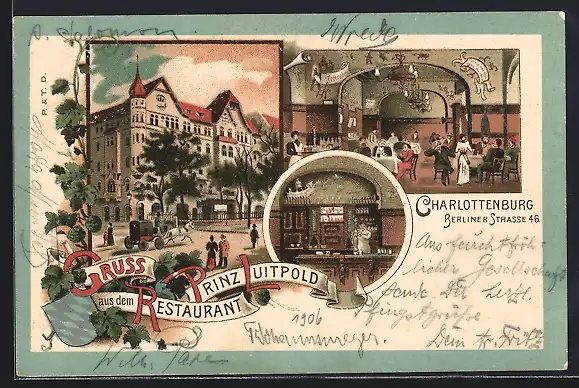 Salomon
Wrede
P. & T. D.
CHARLOTTENBURG
BERLINER STRASSE 46.
GRUSS
aus dem
RESTAURANT
PRINZ LUITPOLD
Aus feuchtfröh-
licher Gesellschaft
sende Dir herzl.
Pfingstgrüße
Dein tr. Fritz
1906